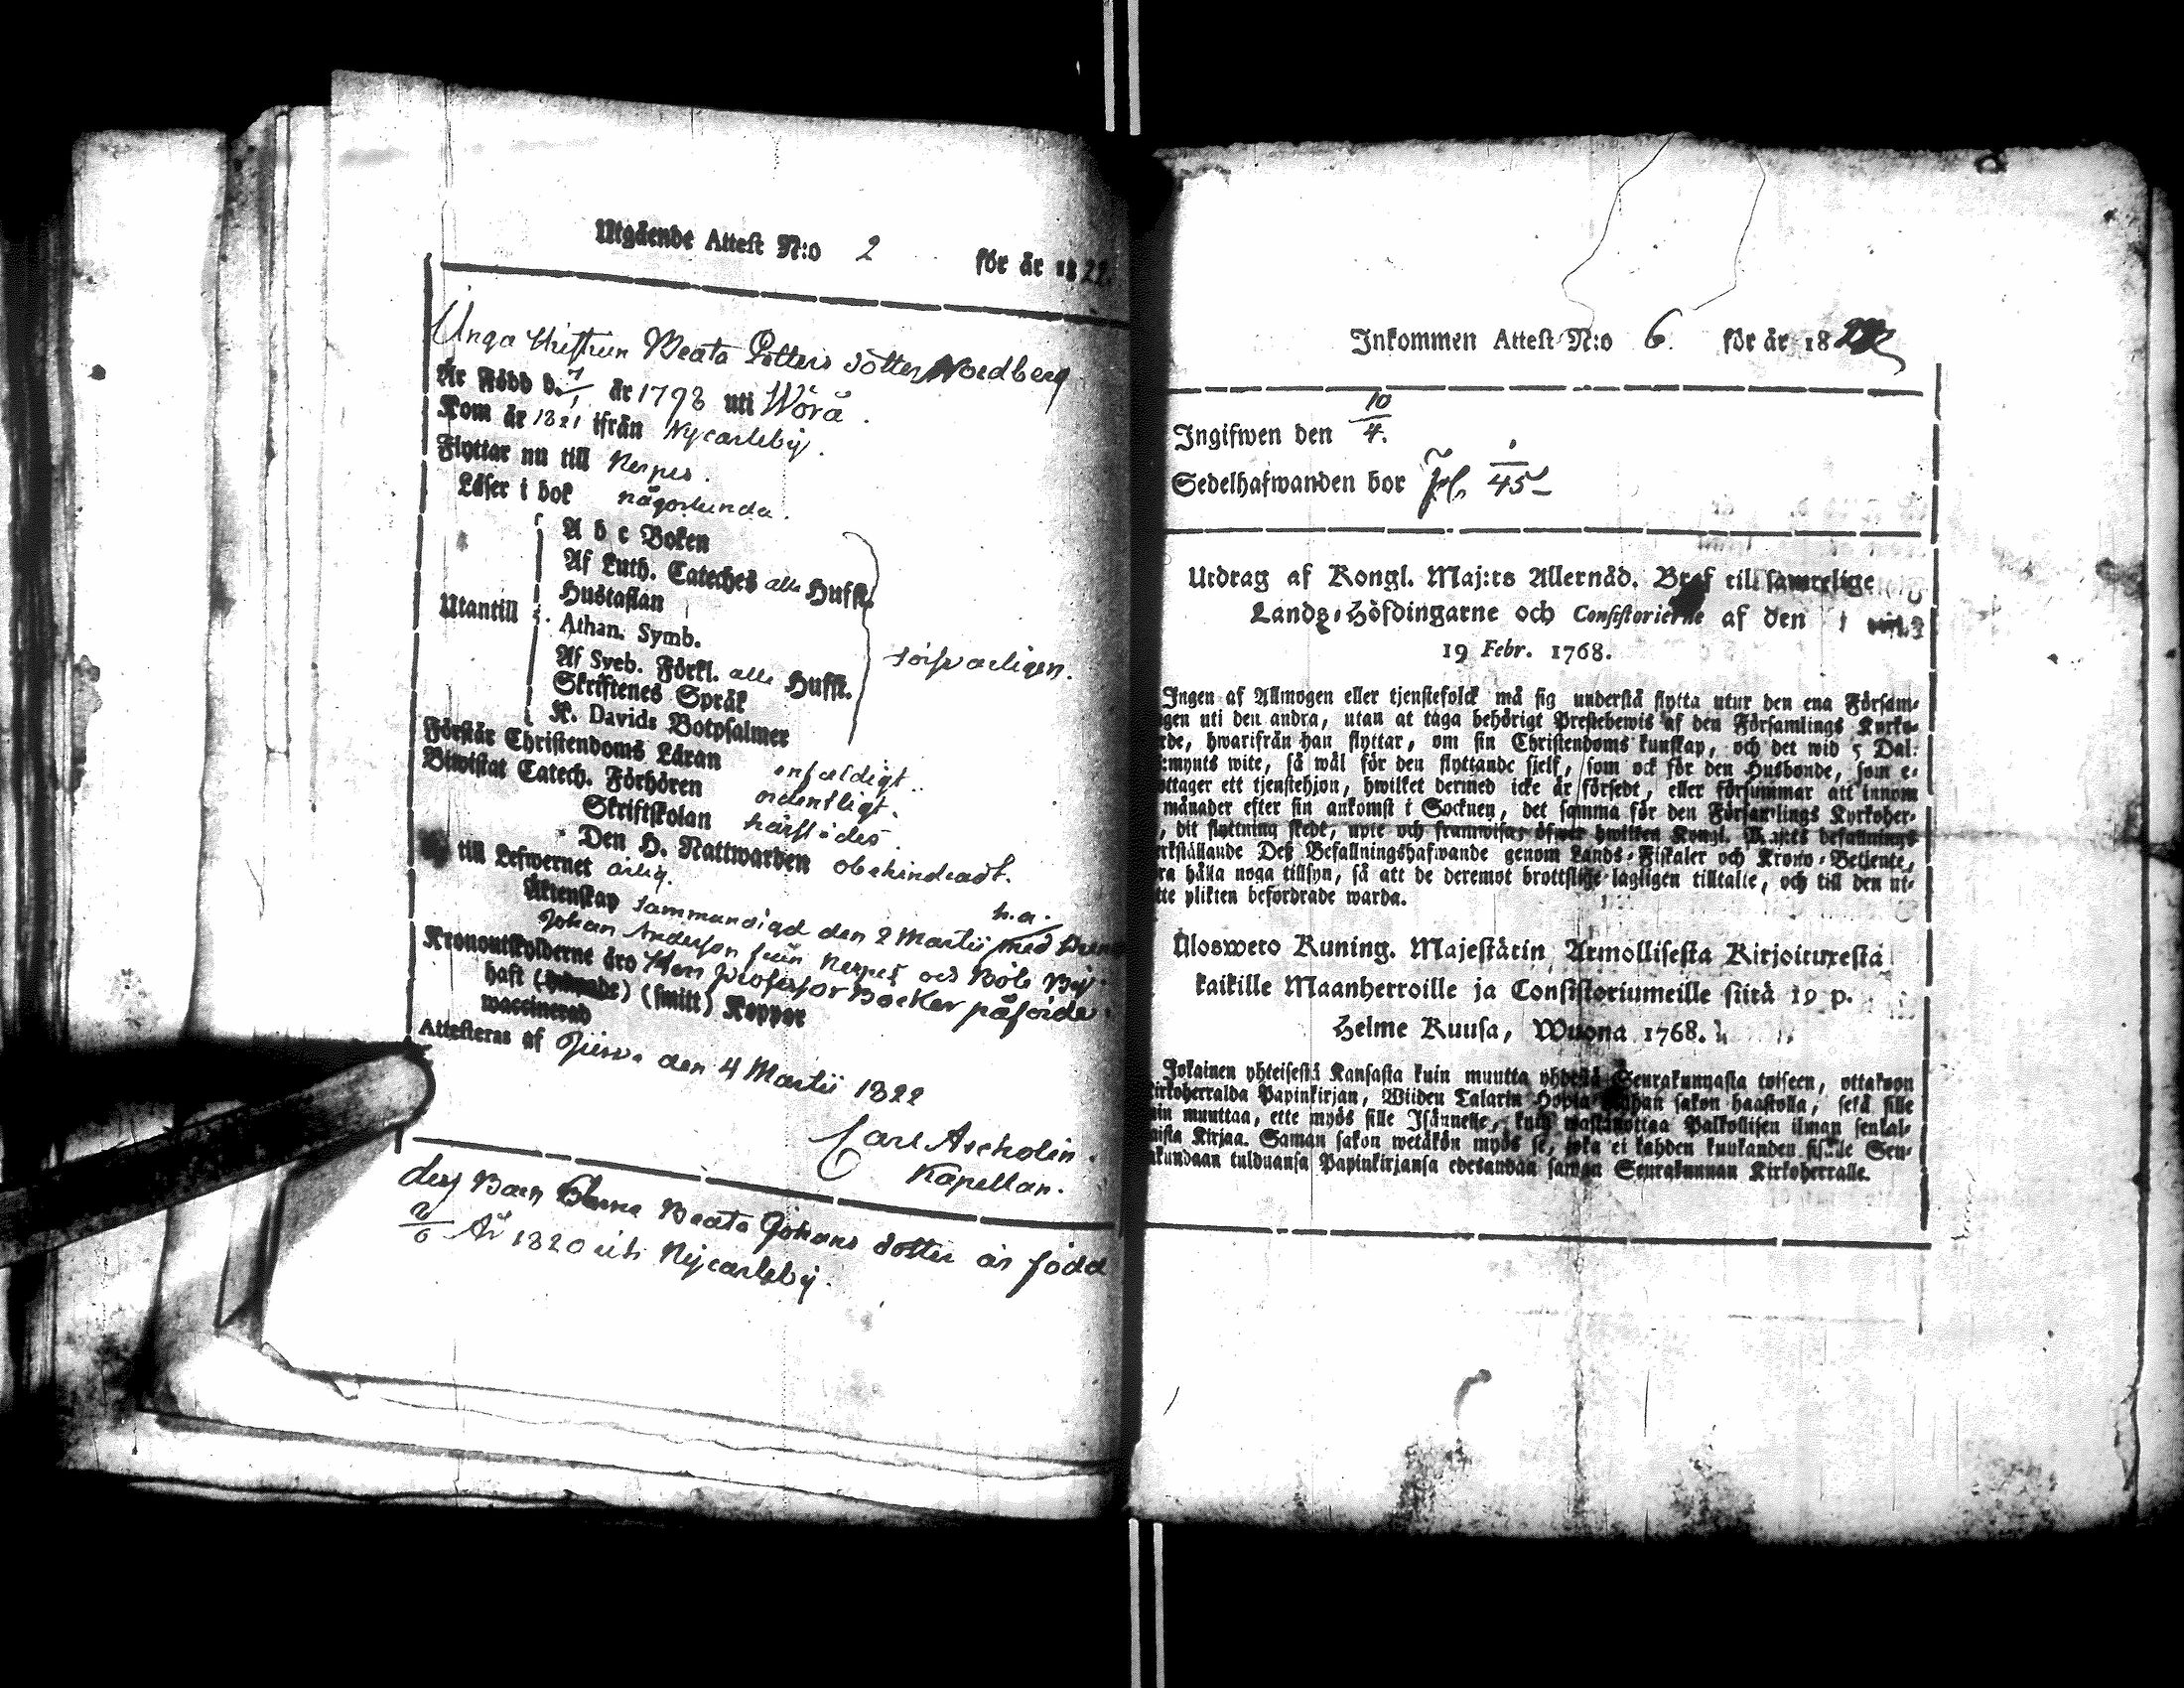 Utgående Attest N:o 2 för år 1822.
Unga Hustrun Beata Petters dotter Nordberg
Är Född d. 7/1 år 1793 uti Wörå.
Kom år 1821 ifrån Nycarleby.
Flyttar nu till Nerpes.
Läser i bok någorlunda.
A b c Boken
Af Luth. Cateches alla Hufst.
Hustaflan
Utantill Athan. Symb.
Af Sveb. Förkl. alla Hufst. försvarligen.
Skriftenes Språk
K. Davids Botpsalmer
Förstår Christendoms Läran enfaldigt.
Biwistat Catech. Förhören ordentligt.
Skriftskolan härstädes.
Den H. Nattwarden obehindradt.
till Lefwernet ärlig.
h.a.
Äktenskap sammanvigd den 2 Martii med
Johan Anderson från Nerpes och Böle By.
Kronoutskylderne äro Herr Professor Backer påförde.
haft () (smitt) Koppor
waccinerad
Attesteras af den 4 Martii 1822
Carl Ascholin.
Kapellan.
dess Barn Beata Johans dotter är född
2/6 År 1820 uti Nycarleby.
Inkommen Attest N:o 6. för år 1822
Ingifwen den 10/4.
Sedelhafwanden bor 45
Utdrag af Kongl. Maj:ts Allernåd. Bref till samtelige
Lands-Höfdingarne och Consistorierne af den
19 Febr. 1768.
Ingen af Allmogen eller tjenstefolck må sig understå flytta utur den ena Försam-
gen uti den andra, utan at taga behörigt Prestebewis af den Församlings Kyrko-
rde, hwarifrån han flyttar, om sin Christendoms kunskap, och det wid 5 Dal.
:mynts wite, så wäl för den flyttande sjelf, som ock för den Husbonde, som e-
ottager ett tjenstehjon, hwilket dermed icke är försedt, eller försummar att innom
månader efter sin ankomst i Socknen, det samma för den Församlings Kyrkoher-
, dit flyttning skedt, upte och framwisa; öfwer hwilken Kongl. Maj:ts befallnings
rkställande Deß Befallningshafwande genom Lands-Fiskaler och Krono-Betjente,
ra hålla noga tillsyn, så att de deremot brottslige lagligen tilltalte, och till den ut-
tte plikten befordrade warda.
Ulosweto Kuning. Majestätin Armollisesta Kirjoituxesta
kaikille Maanherroille ja Consistoriumeille siitä 19 p.
Helme Kuusa, Wuona 1768.
Jokainen yhteisestä Kansasta kuin muutta yhdestä Seurakunnasta toiseen, ottakoon
Kirkoherralda Papinkirjan, Wiiden Talarin Hopia Rahan sakon haastolla, sekä sille
uin muuttaa, ette myös sille Isännelle, kuin wastanottaa Palkollisen ilman senkal-
aista Kirjaa. Saman sakon wetäkön myös se, joka ei kahden kuukauden sisälle Seu-
akundaan tulduansa Papinkirjansa edesandaa saman Seurakunnan Kirkoherralle.